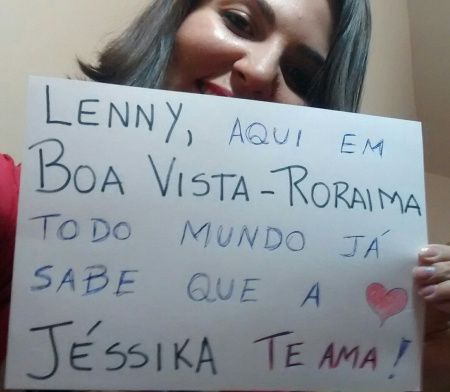 LENNY, AQUI EM
BOA VISTA - RORAIMA
TODO MUNDO JÁ
SABE QUE A
JÉSSIKA TE AMA!